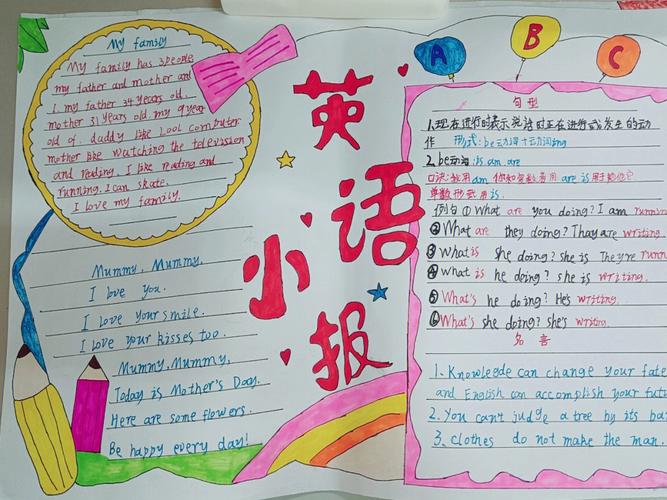 My family
My family has 3people
my father and mother and
I. my father 34 years old.
mother 31 years old. my 9 year
old of. daddy like Look computer
mother like watching the television
and reading. I like reading and
running. I can skate.
I love my family.
Mummy, Mummy,
I love you.
I love your smile.
I love your kisses too.
Mummy, Mummy,
Today is Mother's Day.
Here are some flowers.
Be happy every day!
英
语
小
报
A
B
C
句型
1.现在进行时表示说话时正在进行或发生的动
作 形式: be动词+动词ing
2. be动词: is am are
口诀:我用am 你和复数看用 are is用于他它
单数形式用is
例句① What are you doing? I am running
②What are they doing? Thay are writing.
③What is she doing? she is They're runn
④What is he doing? she is writing.
⑤What's he doing? He's writing.
⑥What's she doing? she's writing.
名言
1. Knowlegde can change your fate
and English can accomplish your futu
2. You can't judge a tree by its ba
3. clothes do not make the man.